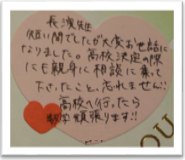 長濱先生
短い間でしたが大変お世話に
なりました。高校決定の際
にも親身に相談に乗って
下さったこと、忘れません!!
高校へ行ったら
頑張ります!!
OU